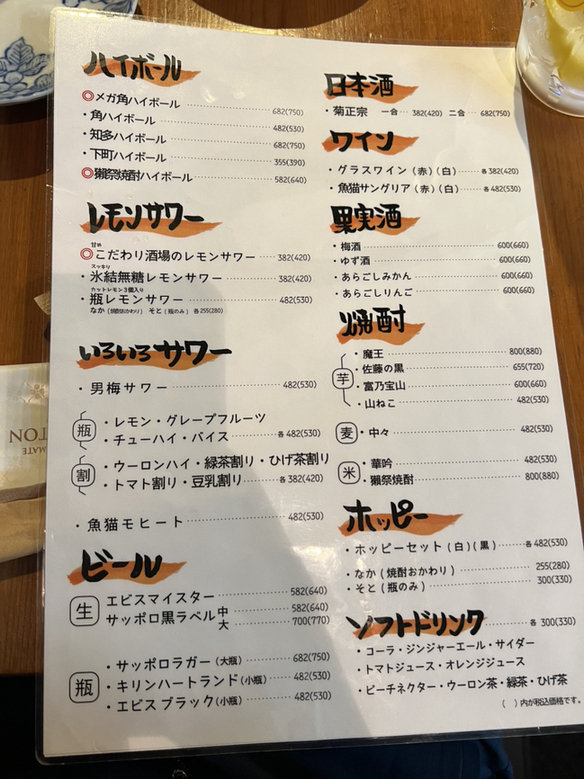 ハイボール
◎メガ角ハイボール 682(750)
・角ハイボール 482(530)
・知多ハイボール 682(750)
・下町ハイボール 355(390)
◎獺祭焼酎ハイボール 582(640)
レモンサワー
甘め
◎こだわり酒場のレモンサワー 382(420)
スッキリ
・氷結無糖レモンサワー 382(420)
カットレモン3個入り
・瓶レモンサワー 482(530)
なか(焼酎おかわり) そと(瓶のみ) 各255(280)
いろいろサワー
・男梅サワー 482(530)
瓶
・レモン・グレープフルーツ
・チューハイ・バイス 各482(530)
割
・ウーロンハイ・緑茶割り・ひげ茶割り
・トマト割り・豆乳割り 各382(420)
・魚猫モヒート 482(530)
ビール
生
エビスマイスター 582(640)
サッポロ黒ラベル 中 582(640)
大 700(770)
瓶
・サッポロラガー(大瓶) 682(750)
・キリンハートランド(小瓶) 482(530)
・エビスブラック(小瓶) 482(530)
日本酒
・菊正宗 一合 382(420) 二合 682(750)
ワイン
・グラスワイン(赤)(白) 各382(420)
・魚猫サングリア(赤)(白) 各482(530)
果実酒
・梅酒 600(660)
・ゆず酒 600(660)
・あらごしみかん 600(660)
・あらごしりんご 600(660)
焼酎
芋
・魔王 800(880)
・佐藤の黒 655(720)
・富乃宝山 600(660)
・山ねこ 482(530)
麦
・中々 482(530)
米
・華吟 482(530)
・獺祭焼酎 800(880)
ホッピー
・ホッピーセット(白)(黒) 各482(530)
・なか(焼酎おかわり) 255(280)
・そと(瓶のみ) 300(330)
ソフトドリンク 各300(330)
・コーラ・ジンジャーエール・サイダー
・トマトジュース・オレンジジュース
・ピーチネクター・ウーロン茶・緑茶・ひげ茶
( )内が税込価格です。